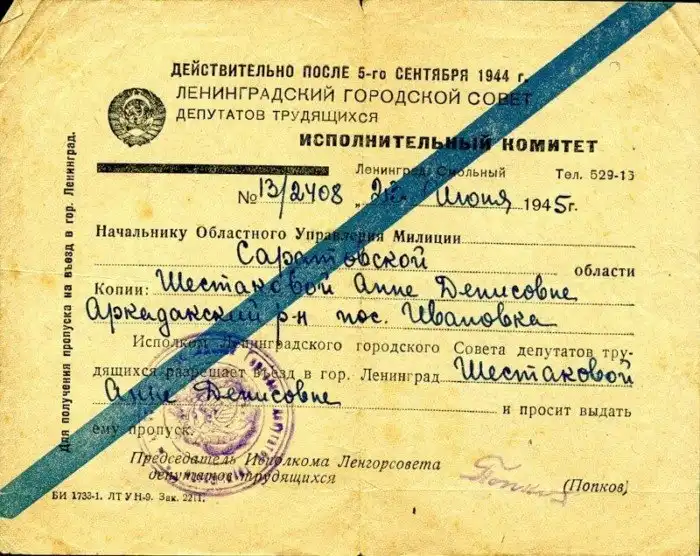 ДЕЙСТВИТЕЛЬНО ПОСЛЕ 5-го СЕНТЯБРЯ 1944 г.
ЛЕНИНГРАДСКИЙ ГОРОДСКОЙ СОВЕТ
ДЕПУТАТОВ ТРУДЯЩИХСЯ
ИСПОЛНИТЕЛЬНЫЙ КОМИТЕТ
Ленинград, Смольный Тел. 529-13
№ 13/2408 „ Июня 1945 г.
Начальнику Областного Управления Милиции
Саратовской области
Копии: Шестаковой Анне Денисовне
Аркадакский р-н пос. Ивановка
Исполком Ленинградского городского Совета депутатов тру-
дящихся разрешает въезд в гор. Ленинград Шестаковой
Анне Денисовне и просит выдать
ему пропуск.
Председатель Исполкома Ленгорсовета
депутатов трудящихся Попков (Попков)
БИ 1733-1. ЛТУН-9. Зак. 2211.
Для получения пропуска на въезд в гор. Ленинград.